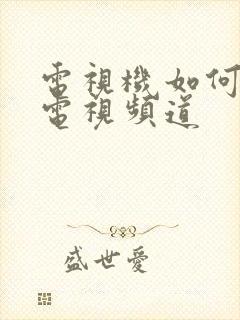 電視機如何
電視頻道
盛世愛